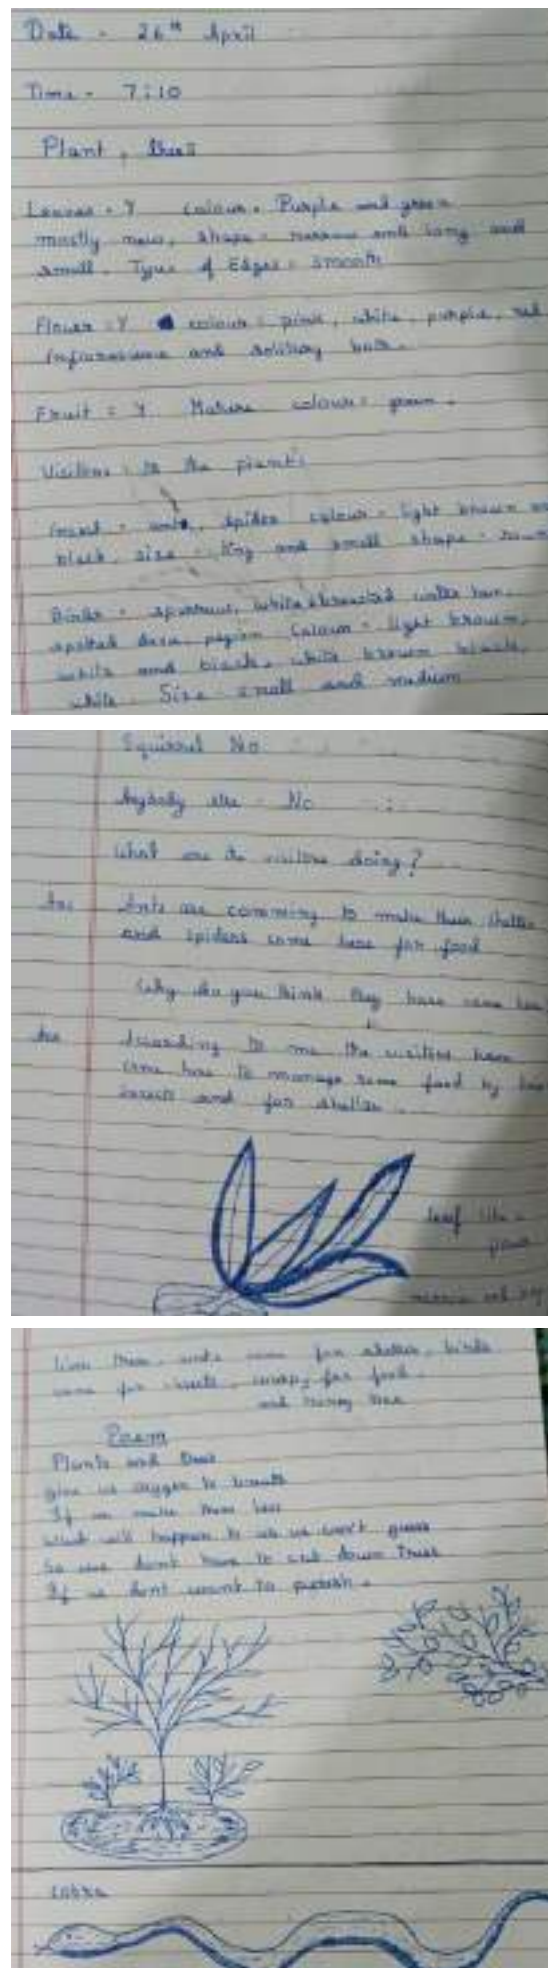 Date - 26th April
Time - 7:10
Plant, trees
Leaves = Y colour = Purple and green
mostly new, shape = narrow and long and
small. Type of Edges = smooth
Flower = Y colour = pink, white, purple, red
Inflorescence and solitary both.
Fruit = Y Mature colour = green.
Visitors to the plant:
Insect = ants, spider colour = light brown
black, size = tiny and small shape =
Birds = sparrow, white breasted water hen,
spotted dove, pigeon Colour = light brown,
white and black, white brown black,
white. Size small and medium
Squirrel No
Anybody else - No
What are the visitors doing?
Ans Ants are comming to make their shelter
and spiders come here for food
Why do you think they have come here
Ans According to me the visitors have
come here to manage some food by
insects and for shelter.
leaf like a
come for insects, for food.
and honey
Poem
Plants and Trees
give us oxygen to breath
If we make them less
what will happen to us we can't guess
So we dont have to cut down trees
If we dont want to perish.
Cobra